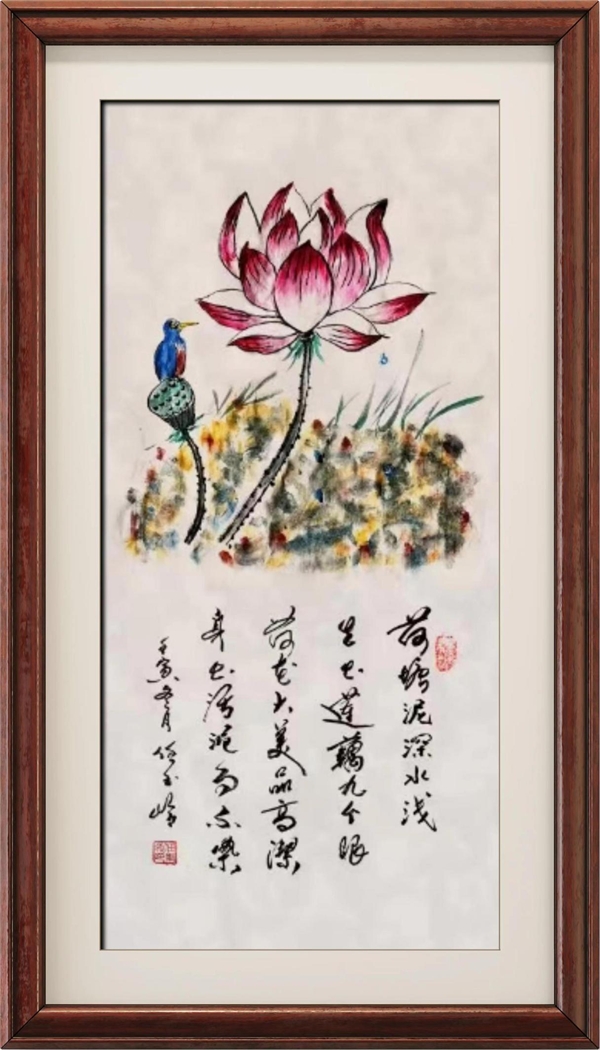 荷塘泥深水浅
生出莲藕九个眼
荷花大美品高洁
身出污泥而不染
壬寅冬月 任玉岭